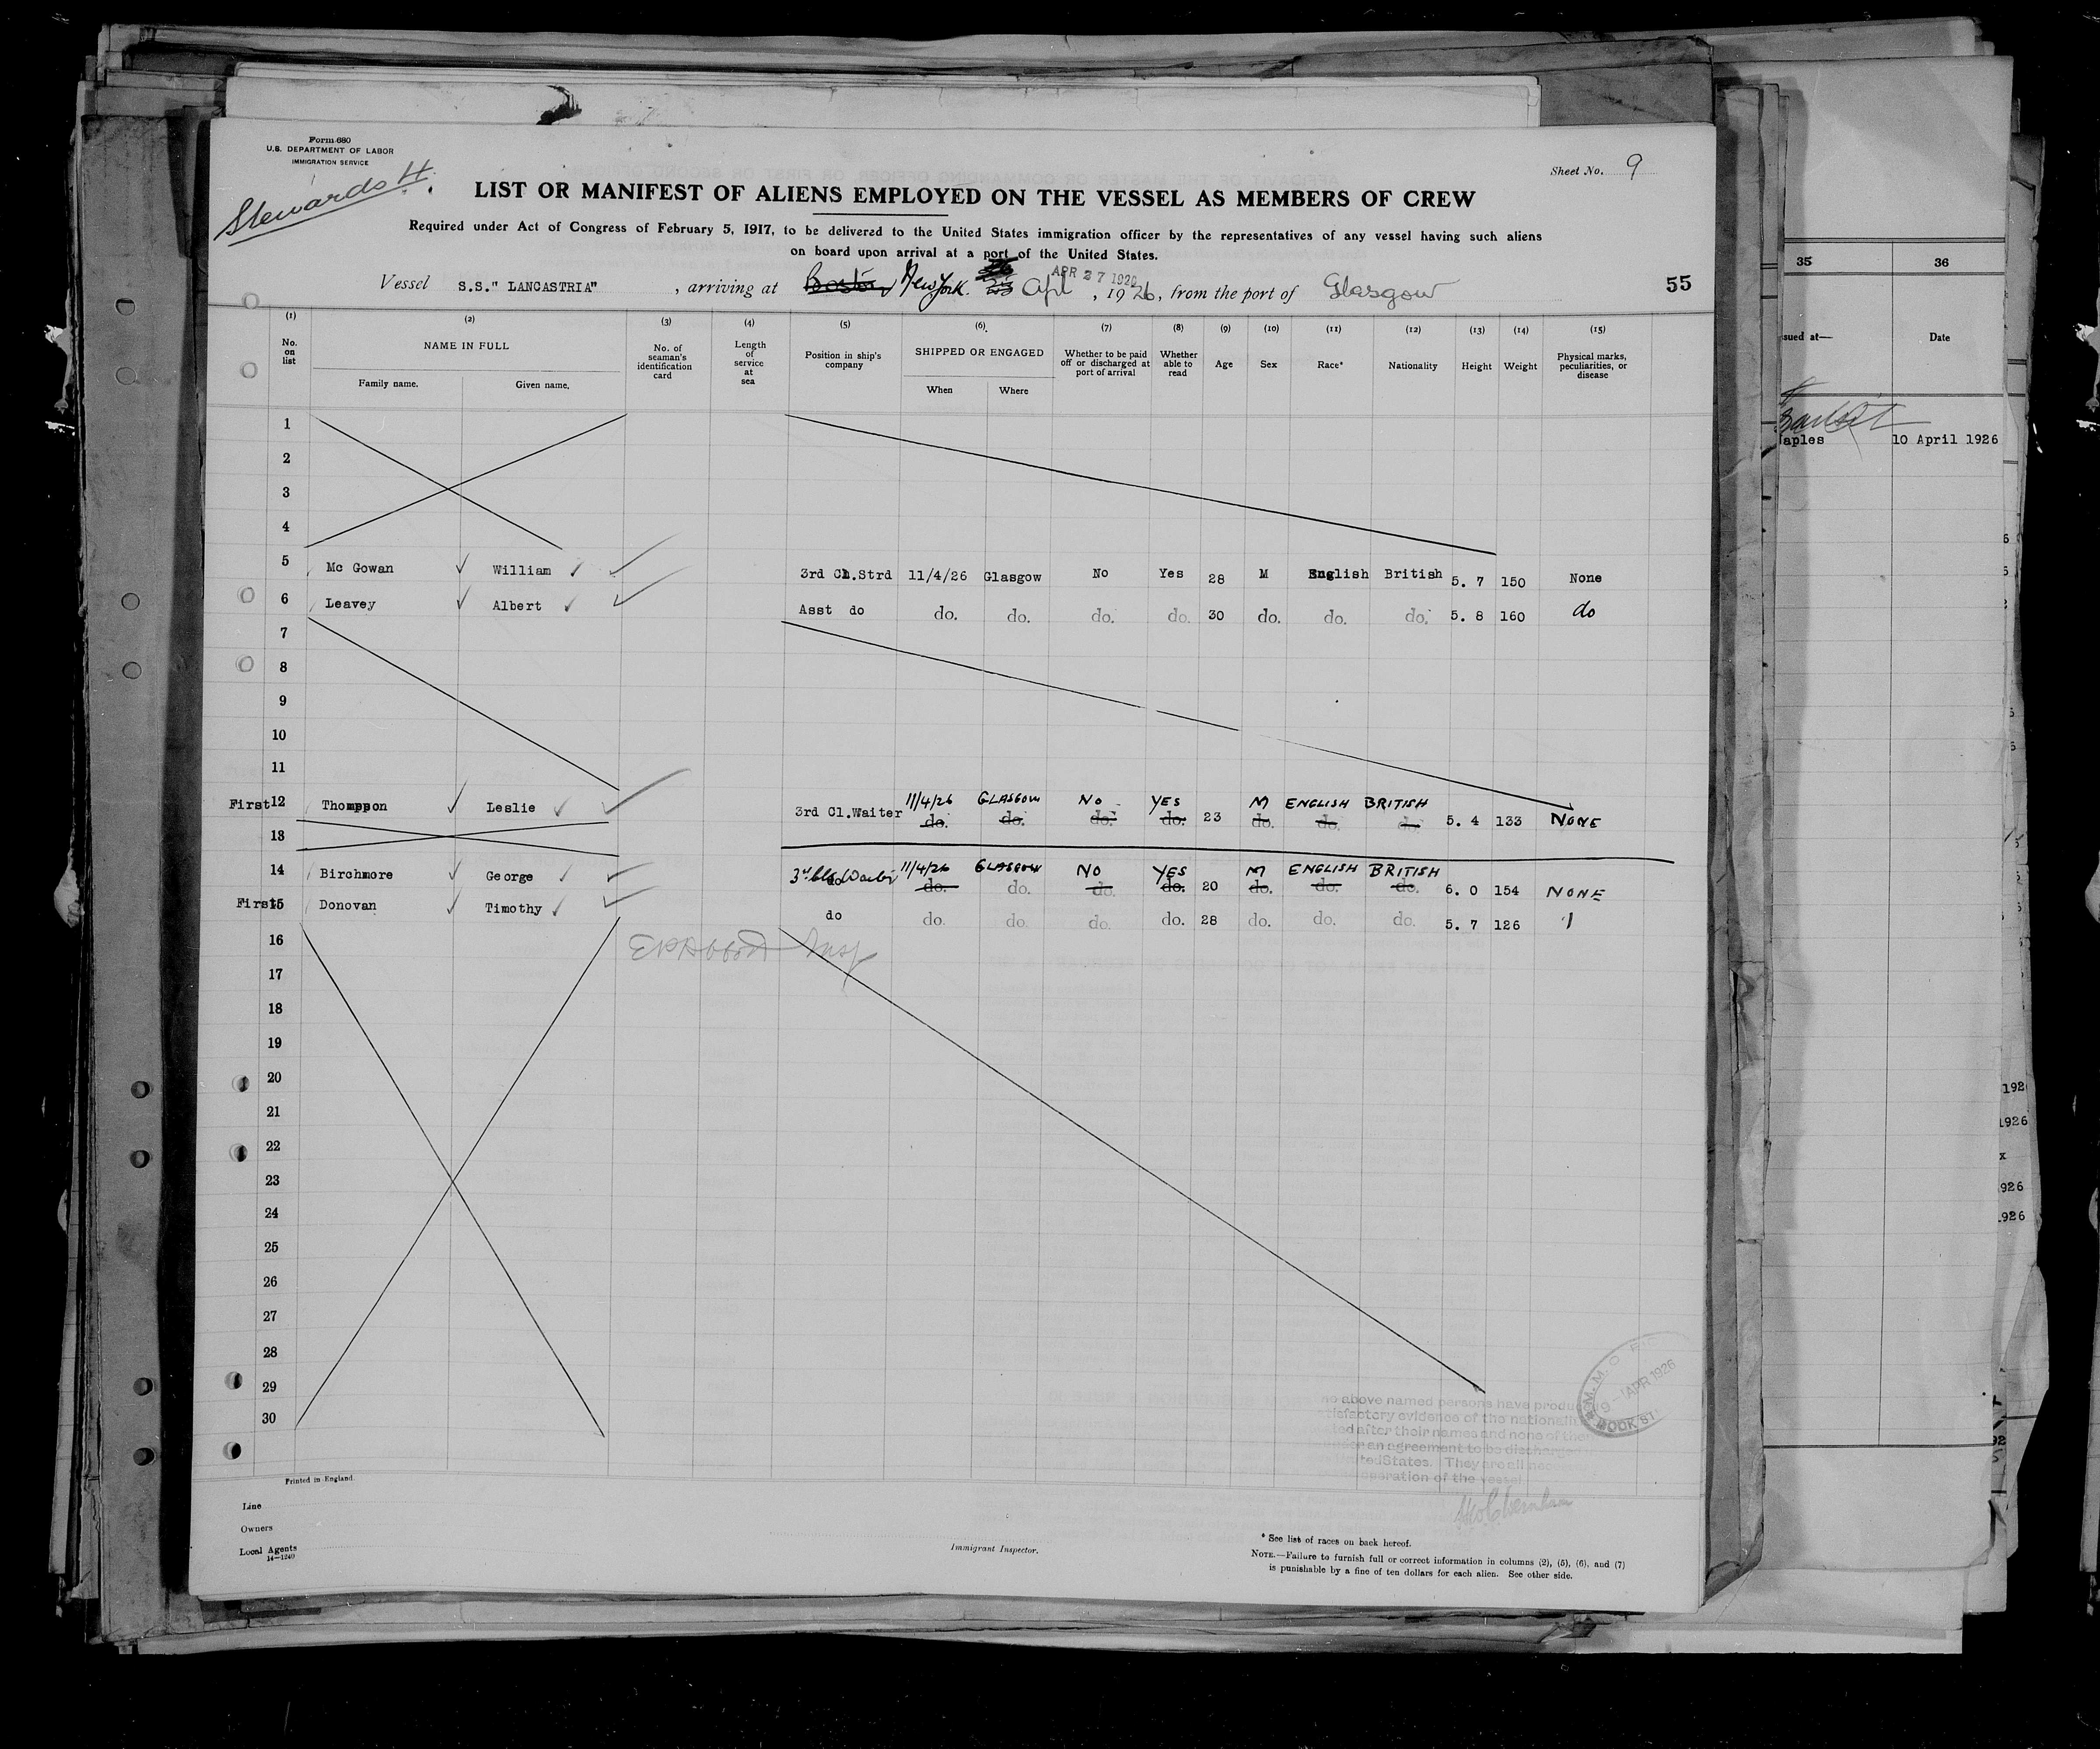 Form 680
U.S. DEPARTMENT OF LABOR
IMMIGRATION SERVICE
Stewards H.
Sheet No. 9
LIST OR MANIFEST OF ALIENS EMPLOYED ON THE VESSEL AS MEMBERS OF CREW
Required under Act of Congress of February 5, 1917, to be delivered to the United States immigration officer by the representatives of any vessel having such aliens
on board upon arrival at a port of the United States.
APR 27 1926
Vessel S.S." LANCASTRIA" , arriving at Boston New York. 25 Apl , 1926, from the port of Glasgow
55
(1) (2) (3) (4) (5) (6) (7) (8) (9) (10) (11) (12) (13) (14) (15)
No. on list NAME IN FULL No. of seaman's identification card Length of service at sea Position in ship's company SHIPPED OR ENGAGED Whether to be paid off or discharged at port of arrival Whether able to read Age Sex Race* Nationality Height Weight Physical marks, peculiarities, or disease
Family name. Given name. When Where
1
2
3
4
5 Mc Gowan William 3rd Cl.Strd 11/4/26 Glasgow No Yes 28 M English British 5. 7 150 None
6 Leavey Albert Asst do do. do. do. do. 30 do. do. do. 5. 8 160 do
7
8
9
10
11
First 12 Thompson Leslie 3rd Cl.Waiter 11/4/26 GLASGOW NO YES 23 M ENGLISH BRITISH 5. 4 133 NONE
do. do. do. do. do. do. do.
13
14 Birchmore George 3rd Cls Waiter 11/4/26 GLASGOW NO YES 20 M ENGLISH BRITISH 6. 0 154 NONE
do do. do. do. do. do. do. do.
First 15 Donovan Timothy do do. do. do. do. 28 do. do. do. 5. 7 126 "
16 Insp
17
18
19
20
21
22
23
24
25
26
27
28
29
30
above named persons have
satisfactory evidence of the
after their names and none of
under an agreement to be
United States. They are all
operation of the vessel
APR 1926
Printed in England.
Line
Owners
Local Agents
14—1240
Immigrant Inspector.
* See list of races on back hereof.
NOTE.—Failure to furnish full or correct information in columns (2), (5), (6), and (7)
is punishable by a fine of ten dollars for each alien. See other side.
35 36
Date
aples 10 April 1926
192
1926
x
926
926